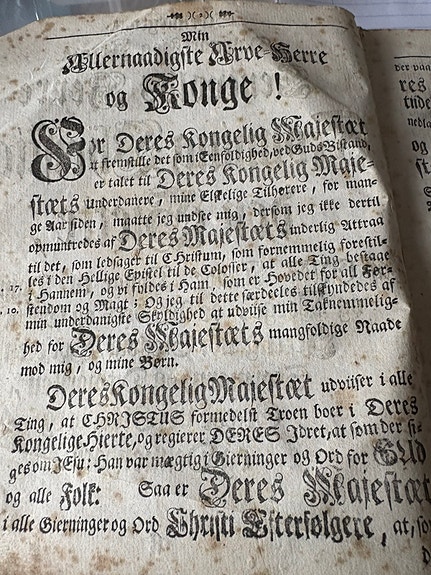 Min
Allernaadigste Arve-Herre
og Konge !
For Deres Kongelig Majestæt
at fremstille det som i Eenfoldighed, ved Guds Bistand,
er talet til Deres Kongelig Maje-
stæts underdanere, mine Elskelige Tilhørere, for man-
ge Aar siden, maatte jeg undsee mig, dersom jeg ikke dertil
opmuntredes af Deres Majestæts inderlig Attraa
til det, som ledsager til Christum, som fornemmelig forestil-
les i den Hellige Epistel til de Colosser, at alle Ting bestaae
17. i Hannem, og vi foldes i Ham, som er Hovedet for all Før-
10. stendom og Magt; Og jeg til dette særdeeles tilskyndedes af
min underdanigste Skyldighed at udvise min Taknemmelig-
hed for Deres Majestæts mangfoldige Naade
mod mig, og mine Børn.
Deres Kongelig Majestæt udviiser i alle
Ting, at CHRISTUS formedelst Troen boer i Deres
Kongelige Hierte, og regierer DERES Idret, at som der si-
ges om JEsu: Han var mægtig i Gierninger og Ord for GUD
og alle Folk: Saa er Deres Majestæt
i alle Gierninger og Ord Christi Efterfølgere, at, so
der paa
res
tudel
nedla
og